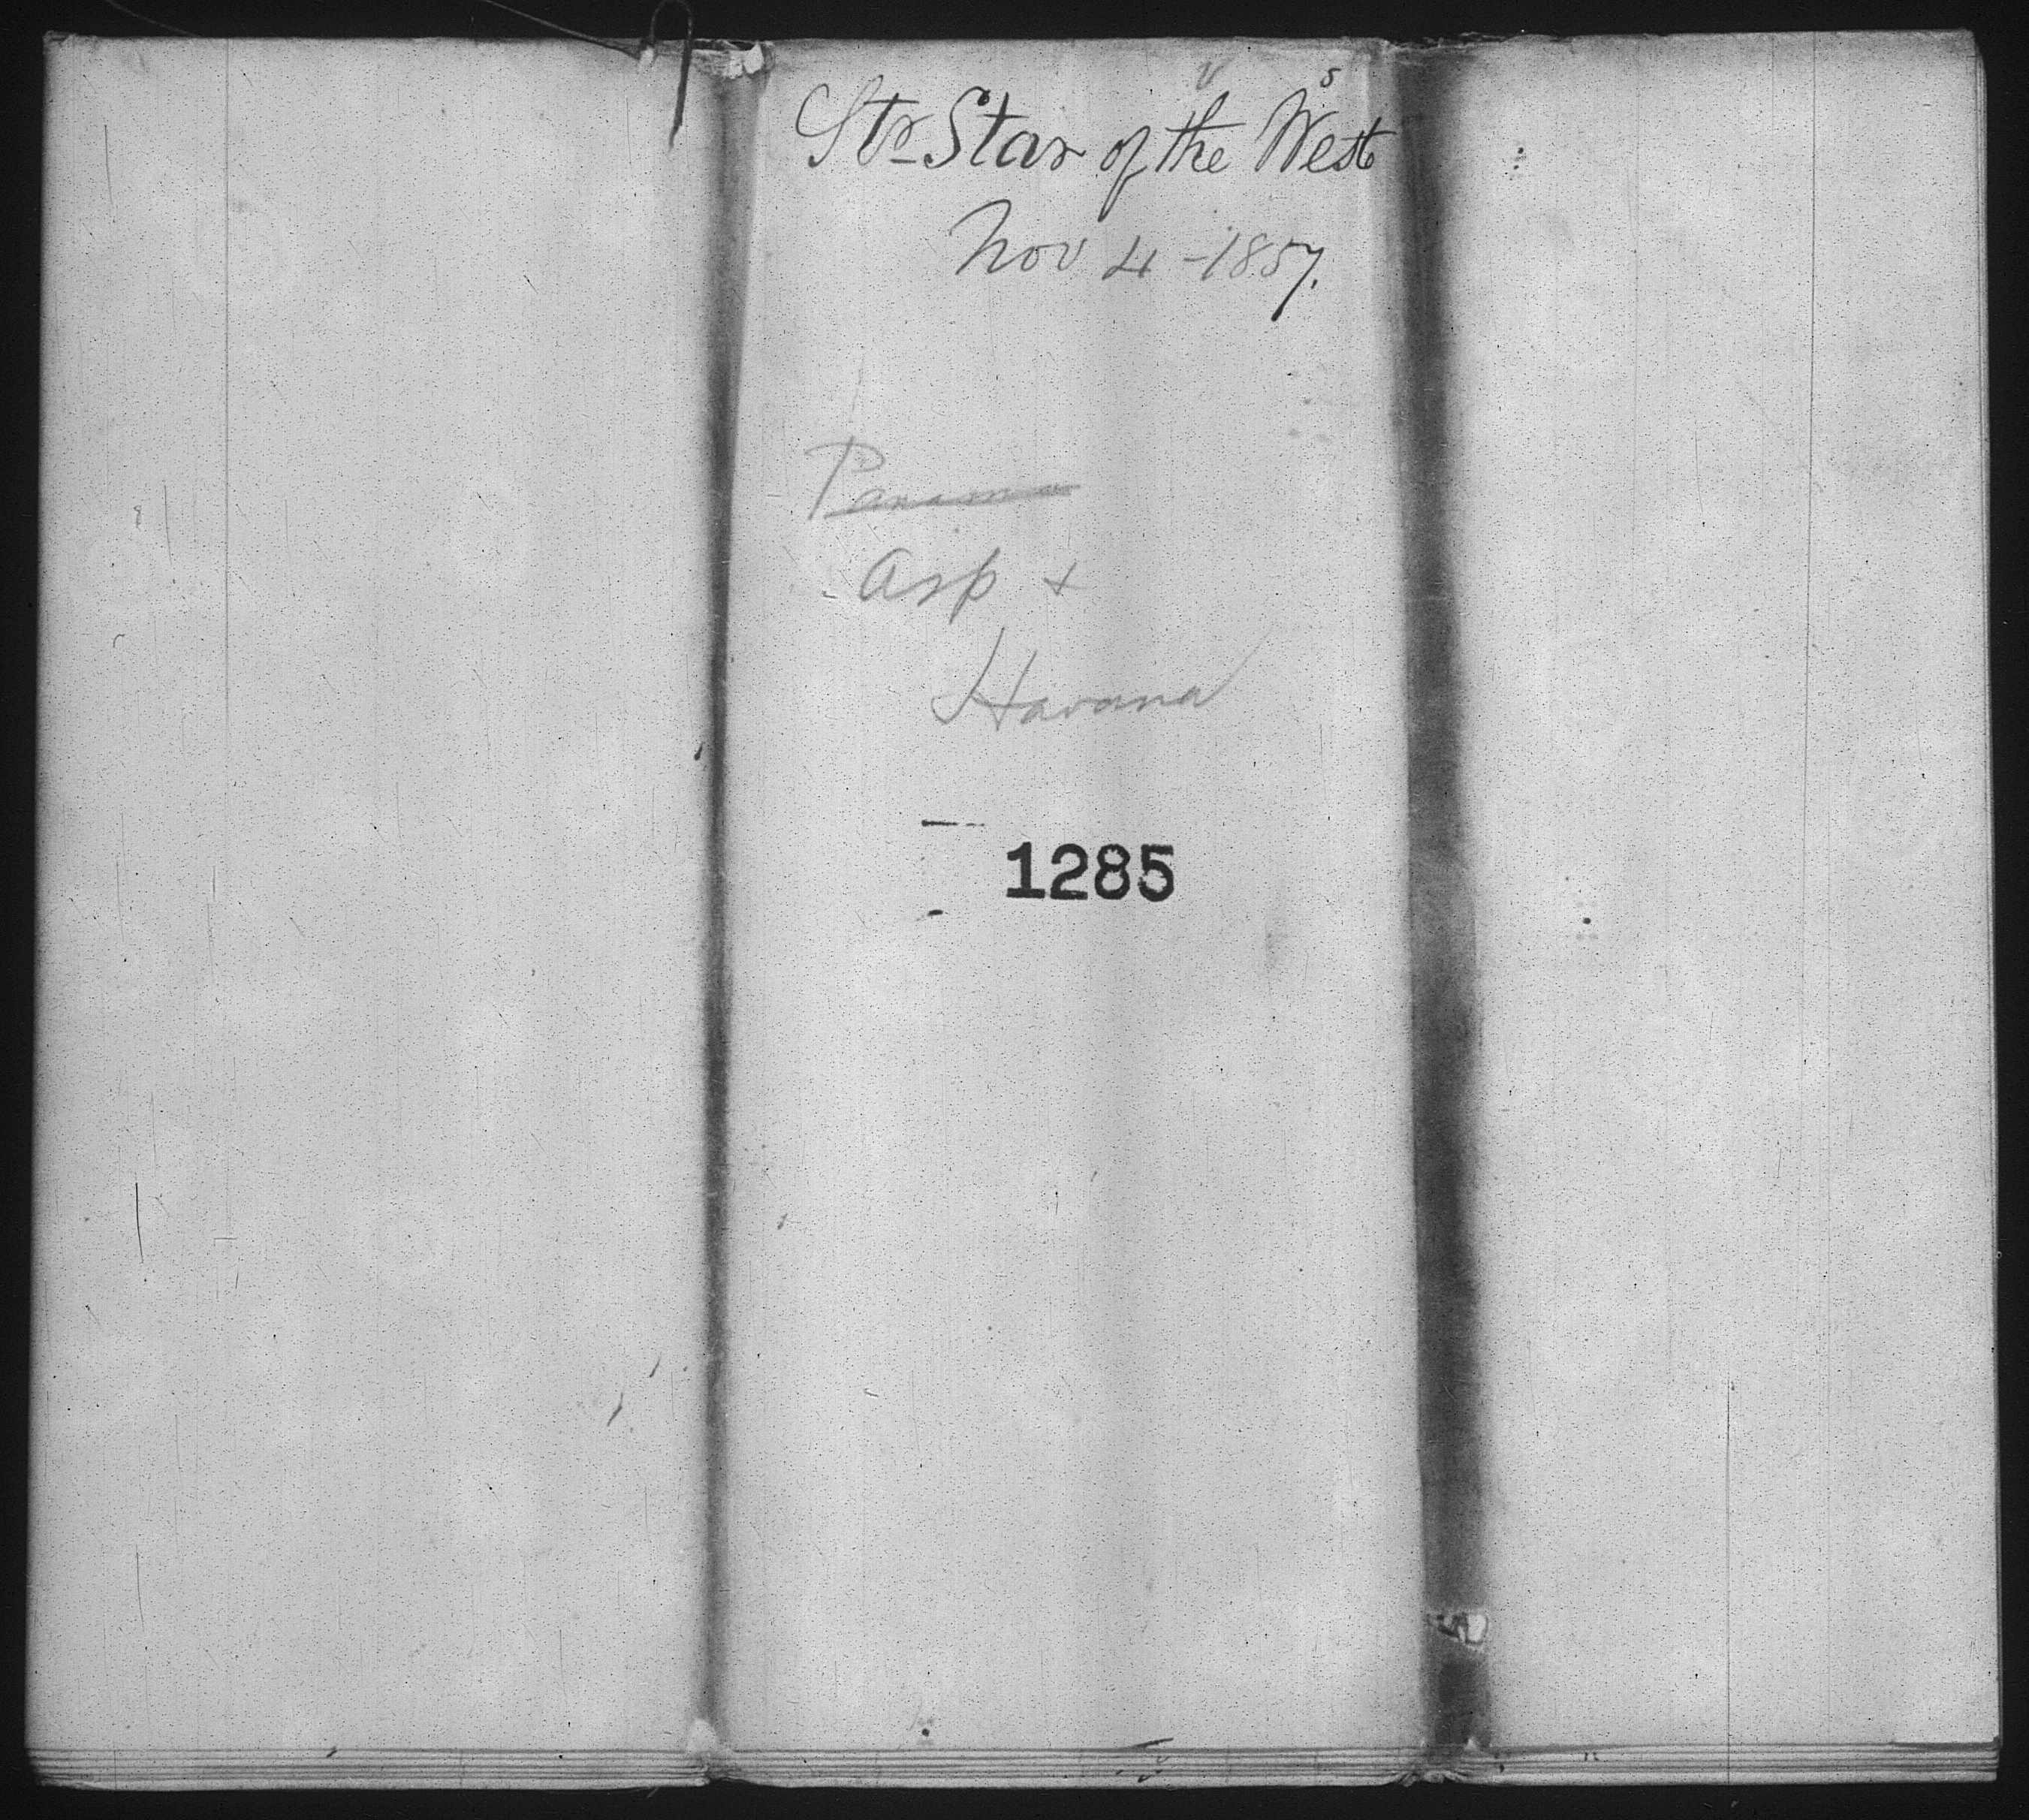 Str Star of the West
Nov 4 - 1857.
Panama
Asp +
Havana
1285